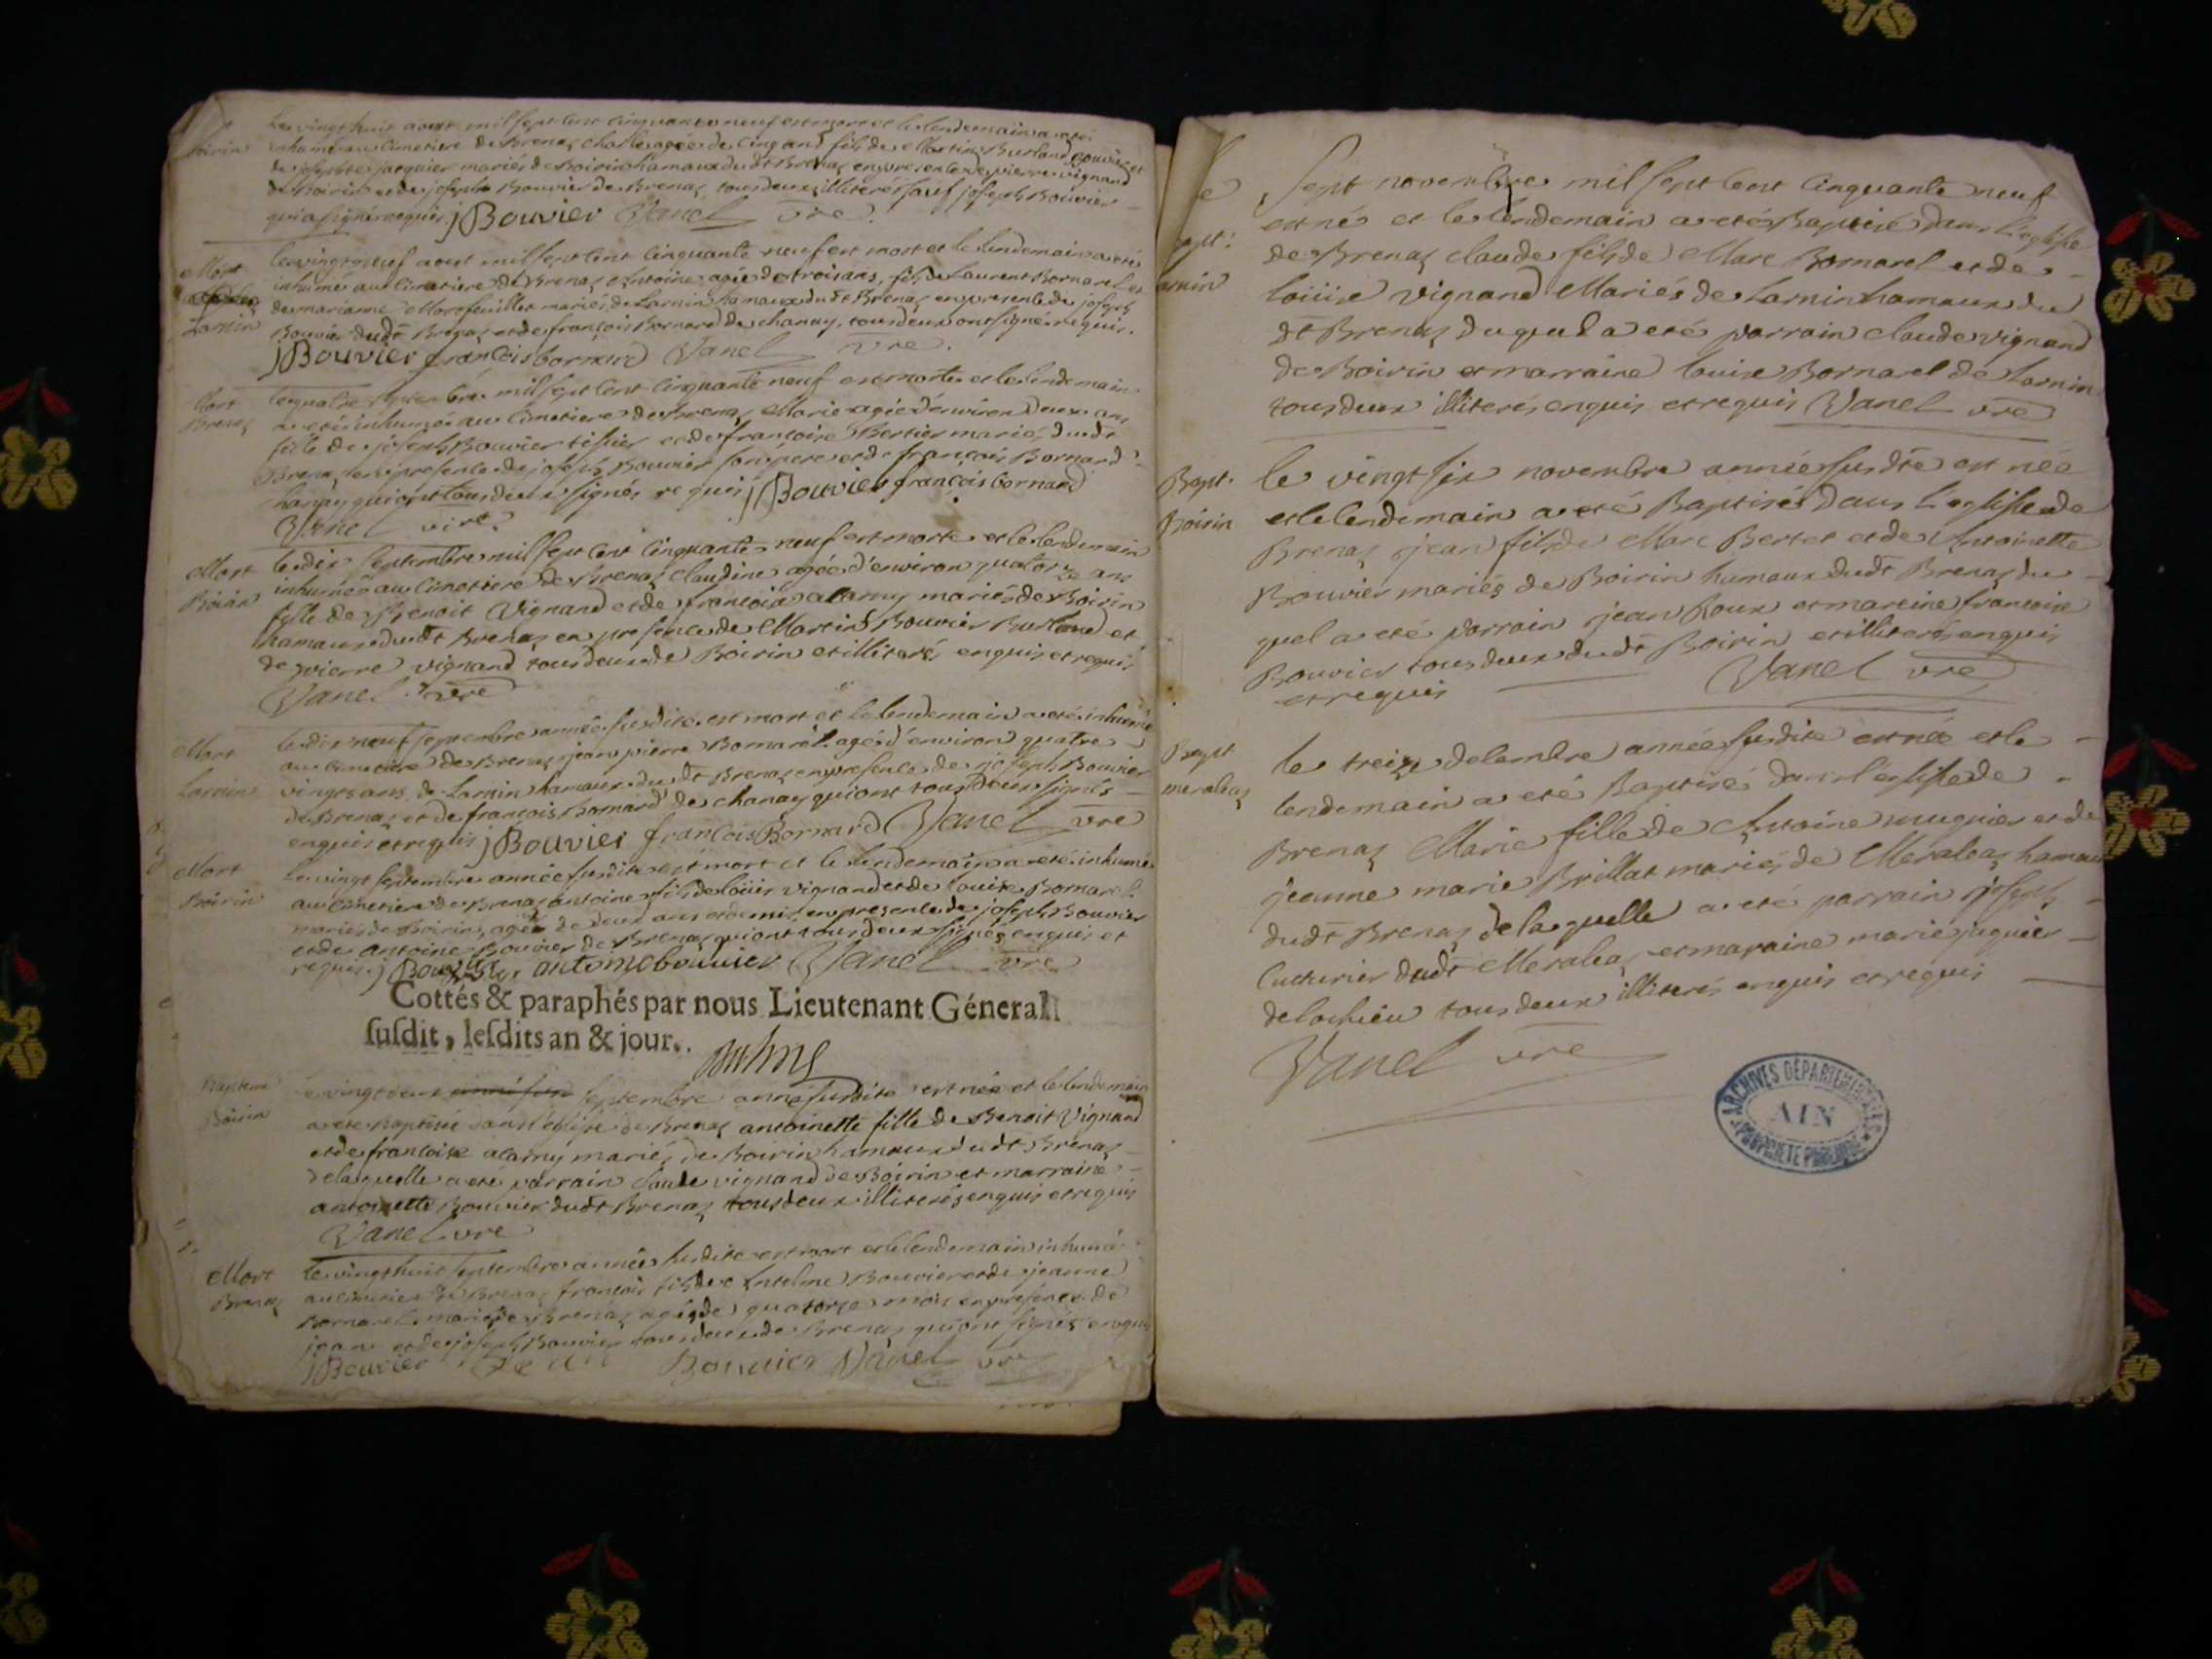 Le vingt huit aout mil sept cent cinquante neuf est mort et le lendemain a eté
Boirin
inhumé au cimetiere de Brenaz Charle agée de cinq ans fils de Martin Burland Bouvier et
de josephte jacquier mariés de Boirin hamaux dudt Brenaz en presence de pierre vignand
de Boirin et de joseph Bouvier de Brenaz tous deux illiterés sauf joseph Bouvier
qui a signé requis j Bouvier Vanel vre
Mort
Larnin
le vingt neuf aout mil sept cent cinquante neuf est mort et le lendemain a eté
inhumé au cimetiere de Brenaz Antoine agée de trois ans, fils de Laurent Bornarel et
de marianne Morefeuillet mariés de Larnin hamaux dudt Brenaz en presence de joseph
Bouvier dudt Brenaz et de françois Bornard de chanay, tous deux ont signé requis.
j Bouvier françois bornard Vanel vre.
Mort
Brenaz
le quatre septembre mil sept cent cinquante neuf est morte et le lendemain
a eté inhumée au cimetiere de Brenaz Marie agée d'environ deux ans
fille de joseph Bouvier tissier et de francoise Bertier mariés dudt
Brenaz en presence de joseph Bouvier son pere et de françois Bornard
chanay qui ont tous deux signés requis j Bouvier françois bornard
Vanel vire.
Mort
Boirin
le dix septembre mil sept cent cinquante neuf est morte et le lendemain
inhumée au cimetiere de Brenaz Claudine agée d'environ quatorze ans
fille de Benoit Vignand et de francoise alarmy mariés de Boirin
hamaux dudt Brenaz en presence de Martin Bouvier Burland et
de pierre vignand tous deux de Boirin et illiterés enquis et requis
Vanel vre
Mort
Larnin
le dix neuf septembre année susdite est mort et le lendemain a eté inhumé
au cimetiere de Brenaz jean pierre Bornarel agé d'environ quatre
vingts ans de Larnin hamaux dudt Brenaz en presence de joseph Bouvier
de Brenaz et de francois Bornard de chanay qui ont tous deux signés
enquis et requis j Bouvier francois Bornard Vanel vre
Mort
Boirin
Le vingt septembre année susdite est mort et le lendemain a eté inhumé
au cimetiere de Brenaz antoine fils de loüis vignand et de louise Bornarel
mariés de Boirin, agée de deux ans et demi en presence de joseph Bouvier
et de antoine Bouvier de Brenaz qui ont tous deux signés enquis et
requis. j Bouvier antoine bouvier Vanel vre
Cottés & paraphés par nous Lieutenant Géneral
susdit, lesdits an & jour.
Bapteme
Boirin
le vingt deux septembre année susdite est née et le lendemain
a eté Baptisée dans l'église de Brenaz antoinette fille de Benoit Vignand
et de francoise alarmy mariés de Boirin hamaux dudt Brenaz
de laquelle a eté parrain Claude vignand de Boirin et marraine
antoinette Bouvier dudt Brenaz tous deux illiterés enquis et requis
Vanel vre
Mort
Brenaz
Le vingt huit septembre année susdite est mort et le lendemain inhumé
au cimetiere de Brenaz francois fils de Anselme Bouvier et de jeanne
Bornarel mariés de Brenaz agé de quatorze mois en presence de
jean et de joseph Bouvier tous deux de Brenaz qui ont signés requis
j Bouvier Jean Bouvier Vanel vre
le sept novembre mil sept cent cinquante neuf
est né et le lendemain a eté Baptisé dans l'eglise
Bapt:
arnin
de Brenaz claude fils de Marc Bornarel et de
loüise vignand Mariés de Larnin hamaux du
dt Brenaz duquel a eté parrain claude vignand
de Boirin et marraine louise Bornarel de Larnin
tous deux illiterés enquis et requis Vanel vre
Bapt.
Boirin
le vingt six novembre année susdte est née
et le lendemain a eté Baptisé dans l'eglise de
Brenaz jean fils de Marc Bertet et de Antoinette
Bouvier mariés de Boirin hamaux dudt Brenaz du
quel a eté parrain jean Roux et mareine francoise
Bouvier tous deux dudt Boirin et illiterés enquis
et requis Vanel vre
Bapt
meraleaz
le treize decembre année susdite est née et le
lendemain a eté Baptisé dans l'église de
Brenaz Marie fille de Antoine muguier et de
jeanne marie Brillat mariés de Meraleaz hamau
dudt Brenaz de laquelle a eté parrain joseph
Cutturier dudt Meraleaz et maraine marie juguier
de lochieu tous deux illiterés enquis et requis
Vanel vre
ARCHIVES DÉPARTEMENTALES
AIN
PROPRIETE PUBLIQUE